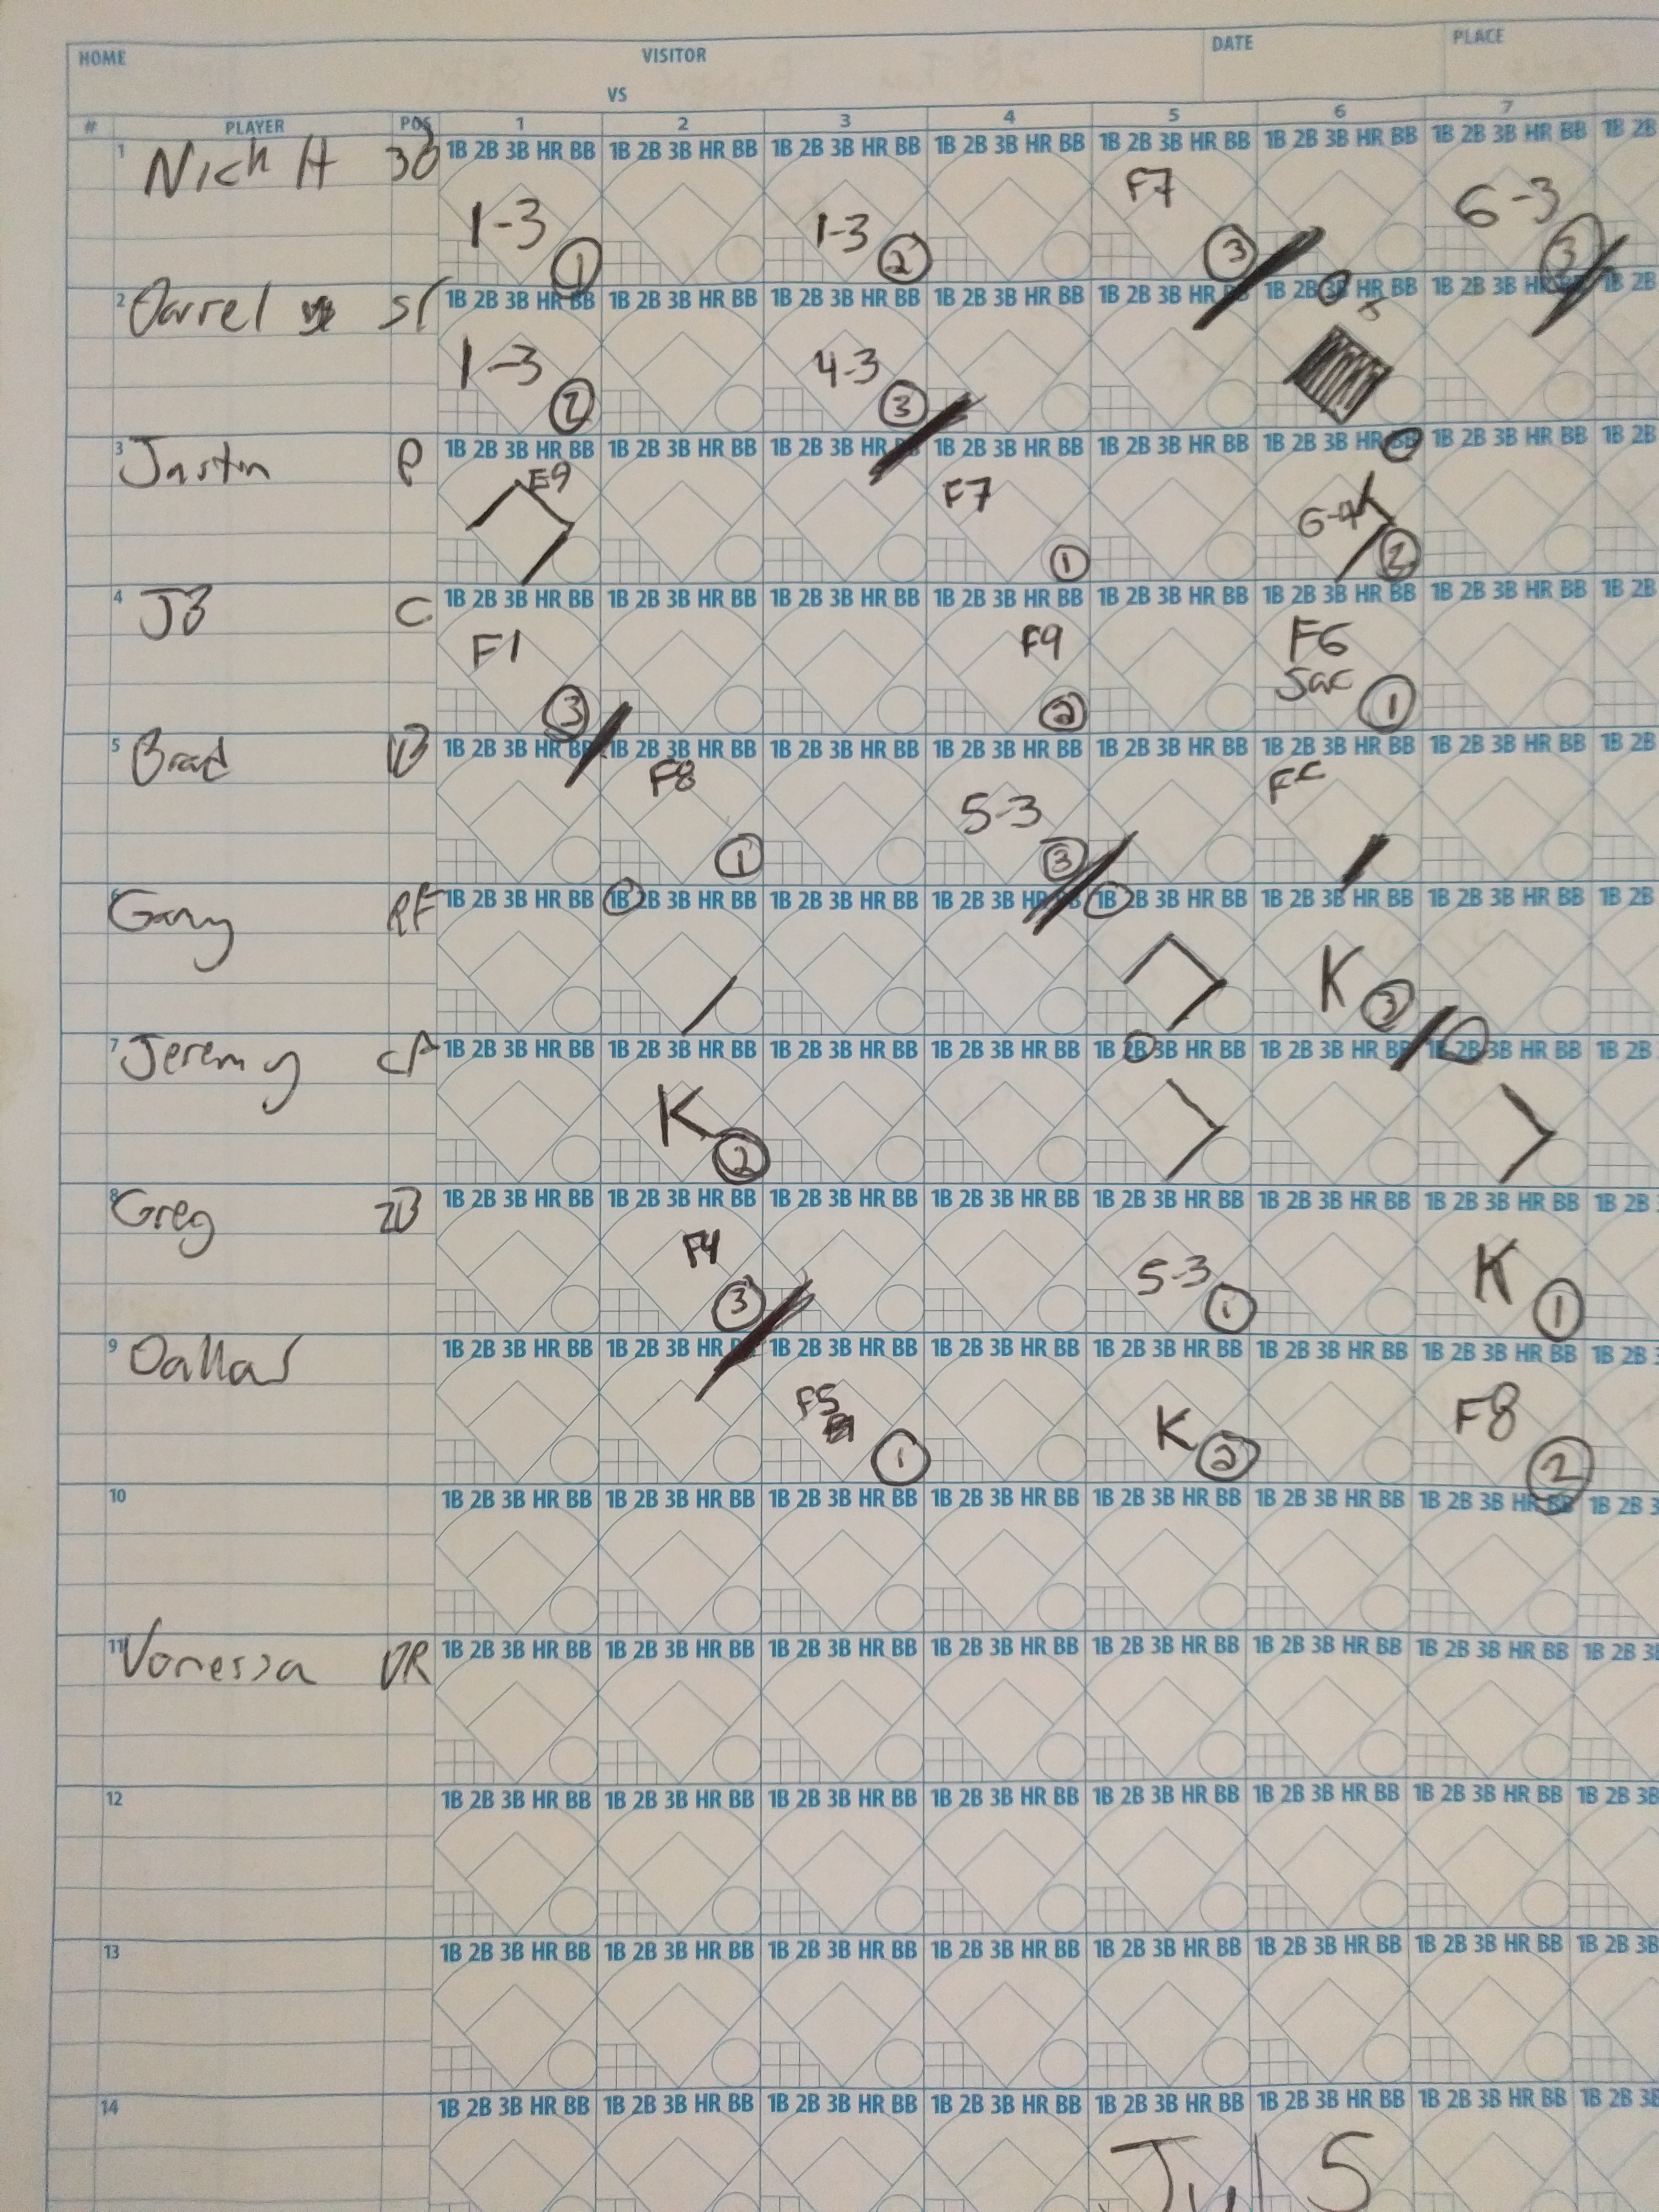 HOME VISITOR DATE PLACE
VS
# PLAYER POS 1 2 3 4 5 6 7
1 Nich H 3B 1B 2B 3B HR BB 1B 2B 3B HR BB 1B 2B 3B HR BB 1B 2B 3B HR BB 1B 2B 3B HR BB 1B 2B 3B HR BB 1B 2B 3B HR BB 1B 2B
1-3 1 1-3 2 F7 3 6-3 3
2 Darrel 1B 2B 3B HR BB 1B 2B 3B HR BB 1B 2B 3B HR BB 1B 2B 3B HR BB 1B 2B 3B HR 1B 2B 3B HR BB 1B 2B 3B HR 1B 2B
1-3 2 4-3 3
3 Justin P 1B 2B 3B HR BB 1B 2B 3B HR BB 1B 2B 3B HR 1B 2B 3B HR BB 1B 2B 3B HR BB 1B 2B 3B HR BB 1B 2B 3B HR BB 1B 2B
E9 F7 1 6-4 2
4 JB C 1B 2B 3B HR BB 1B 2B 3B HR BB 1B 2B 3B HR BB 1B 2B 3B HR BB 1B 2B 3B HR BB 1B 2B 3B HR BB 1B 2B 3B HR BB 1B 2B
F1 3 F9 2 F6 Sac 1
5 Brad 1B 2B 3B HR BB 1B 2B 3B HR BB 1B 2B 3B HR BB 1B 2B 3B HR BB 1B 2B 3B HR BB 1B 2B 3B HR BB 1B 2B 3B HR BB 1B 2B
F8 1 5-3 3 FC
Gary RF 1B 2B 3B HR BB 1B 2B 3B HR BB 1B 2B 3B HR BB 1B 2B 3B HR 1B 2B 3B HR BB 1B 2B 3B HR BB 1B 2B 3B HR BB 1B 2B
K 3
7 Jeremy CF 1B 2B 3B HR BB 1B 2B 3B HR BB 1B 2B 3B HR BB 1B 2B 3B HR BB 1B 2B 3B HR BB 1B 2B 3B HR BB 1B 2B 3B HR BB 1B 2B
K 2
8 Greg 2B 1B 2B 3B HR BB 1B 2B 3B HR BB 1B 2B 3B HR BB 1B 2B 3B HR BB 1B 2B 3B HR BB 1B 2B 3B HR BB 1B 2B 3B HR BB 1B 2B
F4 3 5-3 1 K 1
9 Dallas 1B 2B 3B HR BB 1B 2B 3B HR 1B 2B 3B HR BB 1B 2B 3B HR BB 1B 2B 3B HR BB 1B 2B 3B HR BB 1B 2B 3B HR BB 1B 2B 3
F5 1 K 2 F8 2
10 1B 2B 3B HR BB 1B 2B 3B HR BB 1B 2B 3B HR BB 1B 2B 3B HR BB 1B 2B 3B HR BB 1B 2B 3B HR BB 1B 2B 3B HR BB 1B 2B 3
11 Vanessa DR 1B 2B 3B HR BB 1B 2B 3B HR BB 1B 2B 3B HR BB 1B 2B 3B HR BB 1B 2B 3B HR BB 1B 2B 3B HR BB 1B 2B 3B HR BB 1B 2B 3B
12 1B 2B 3B HR BB 1B 2B 3B HR BB 1B 2B 3B HR BB 1B 2B 3B HR BB 1B 2B 3B HR BB 1B 2B 3B HR BB 1B 2B 3B HR BB 1B 2B 3B
13 1B 2B 3B HR BB 1B 2B 3B HR BB 1B 2B 3B HR BB 1B 2B 3B HR BB 1B 2B 3B HR BB 1B 2B 3B HR BB 1B 2B 3B HR BB 1B 2B 3B
14 1B 2B 3B HR BB 1B 2B 3B HR BB 1B 2B 3B HR BB 1B 2B 3B HR BB 1B 2B 3B HR BB 1B 2B 3B HR BB 1B 2B 3B HR BB 1B 2B 3B
Jul 5